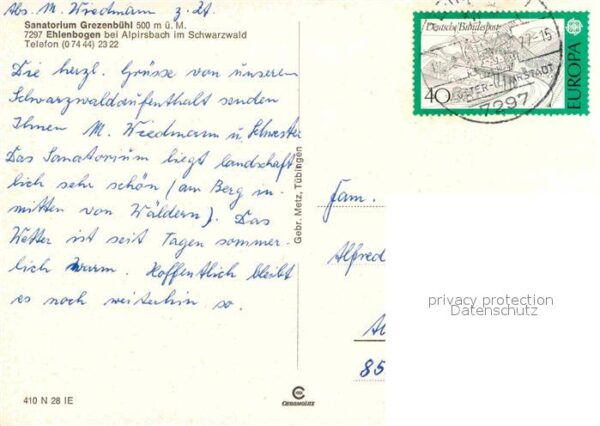 Abs. M. Wiedmann z. Zt.
Sanatorium Grezenbühl 500 m ü. M.
7297 Ehlenbogen bei Alpirsbach im Schwarzwald
Telefon (0 74 44) 23 22
Die herzl. Grüsse von unserem
Schwarzwaldaufenthalt senden
Ihnen M. Wiedmann u. Schwester
Das Sanatorium liegt landschaft
lich sehr schön (am Berg in-
mitten von Wäldern). Das
Wetter ist seit Tagen sommer-
lich warm. Hoffentlich bleibt
es noch weiterhin so.
410 N 28 IE
Gebr. Metz, Tübingen
Deutsche Bundespost
40
EUROPA
77-15
7297
Fam.
Alfred
85
privacy protection
Datenschutz